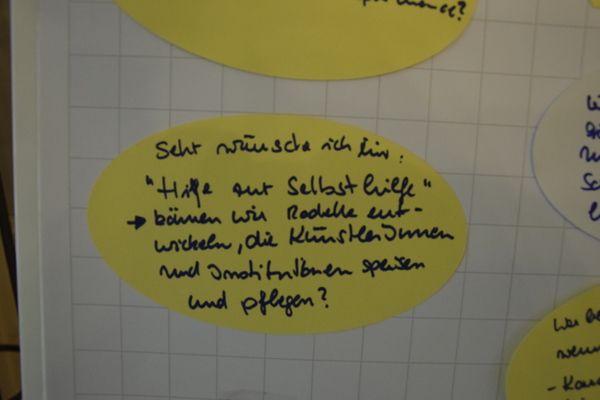 Seht wünsche ich mir:
"Hilfe zur Selbsthilfe"
→ können wir Modelle ent-
wickeln, die KünstlerInnen
und Institutionen speisen
und pflegen?
wenn